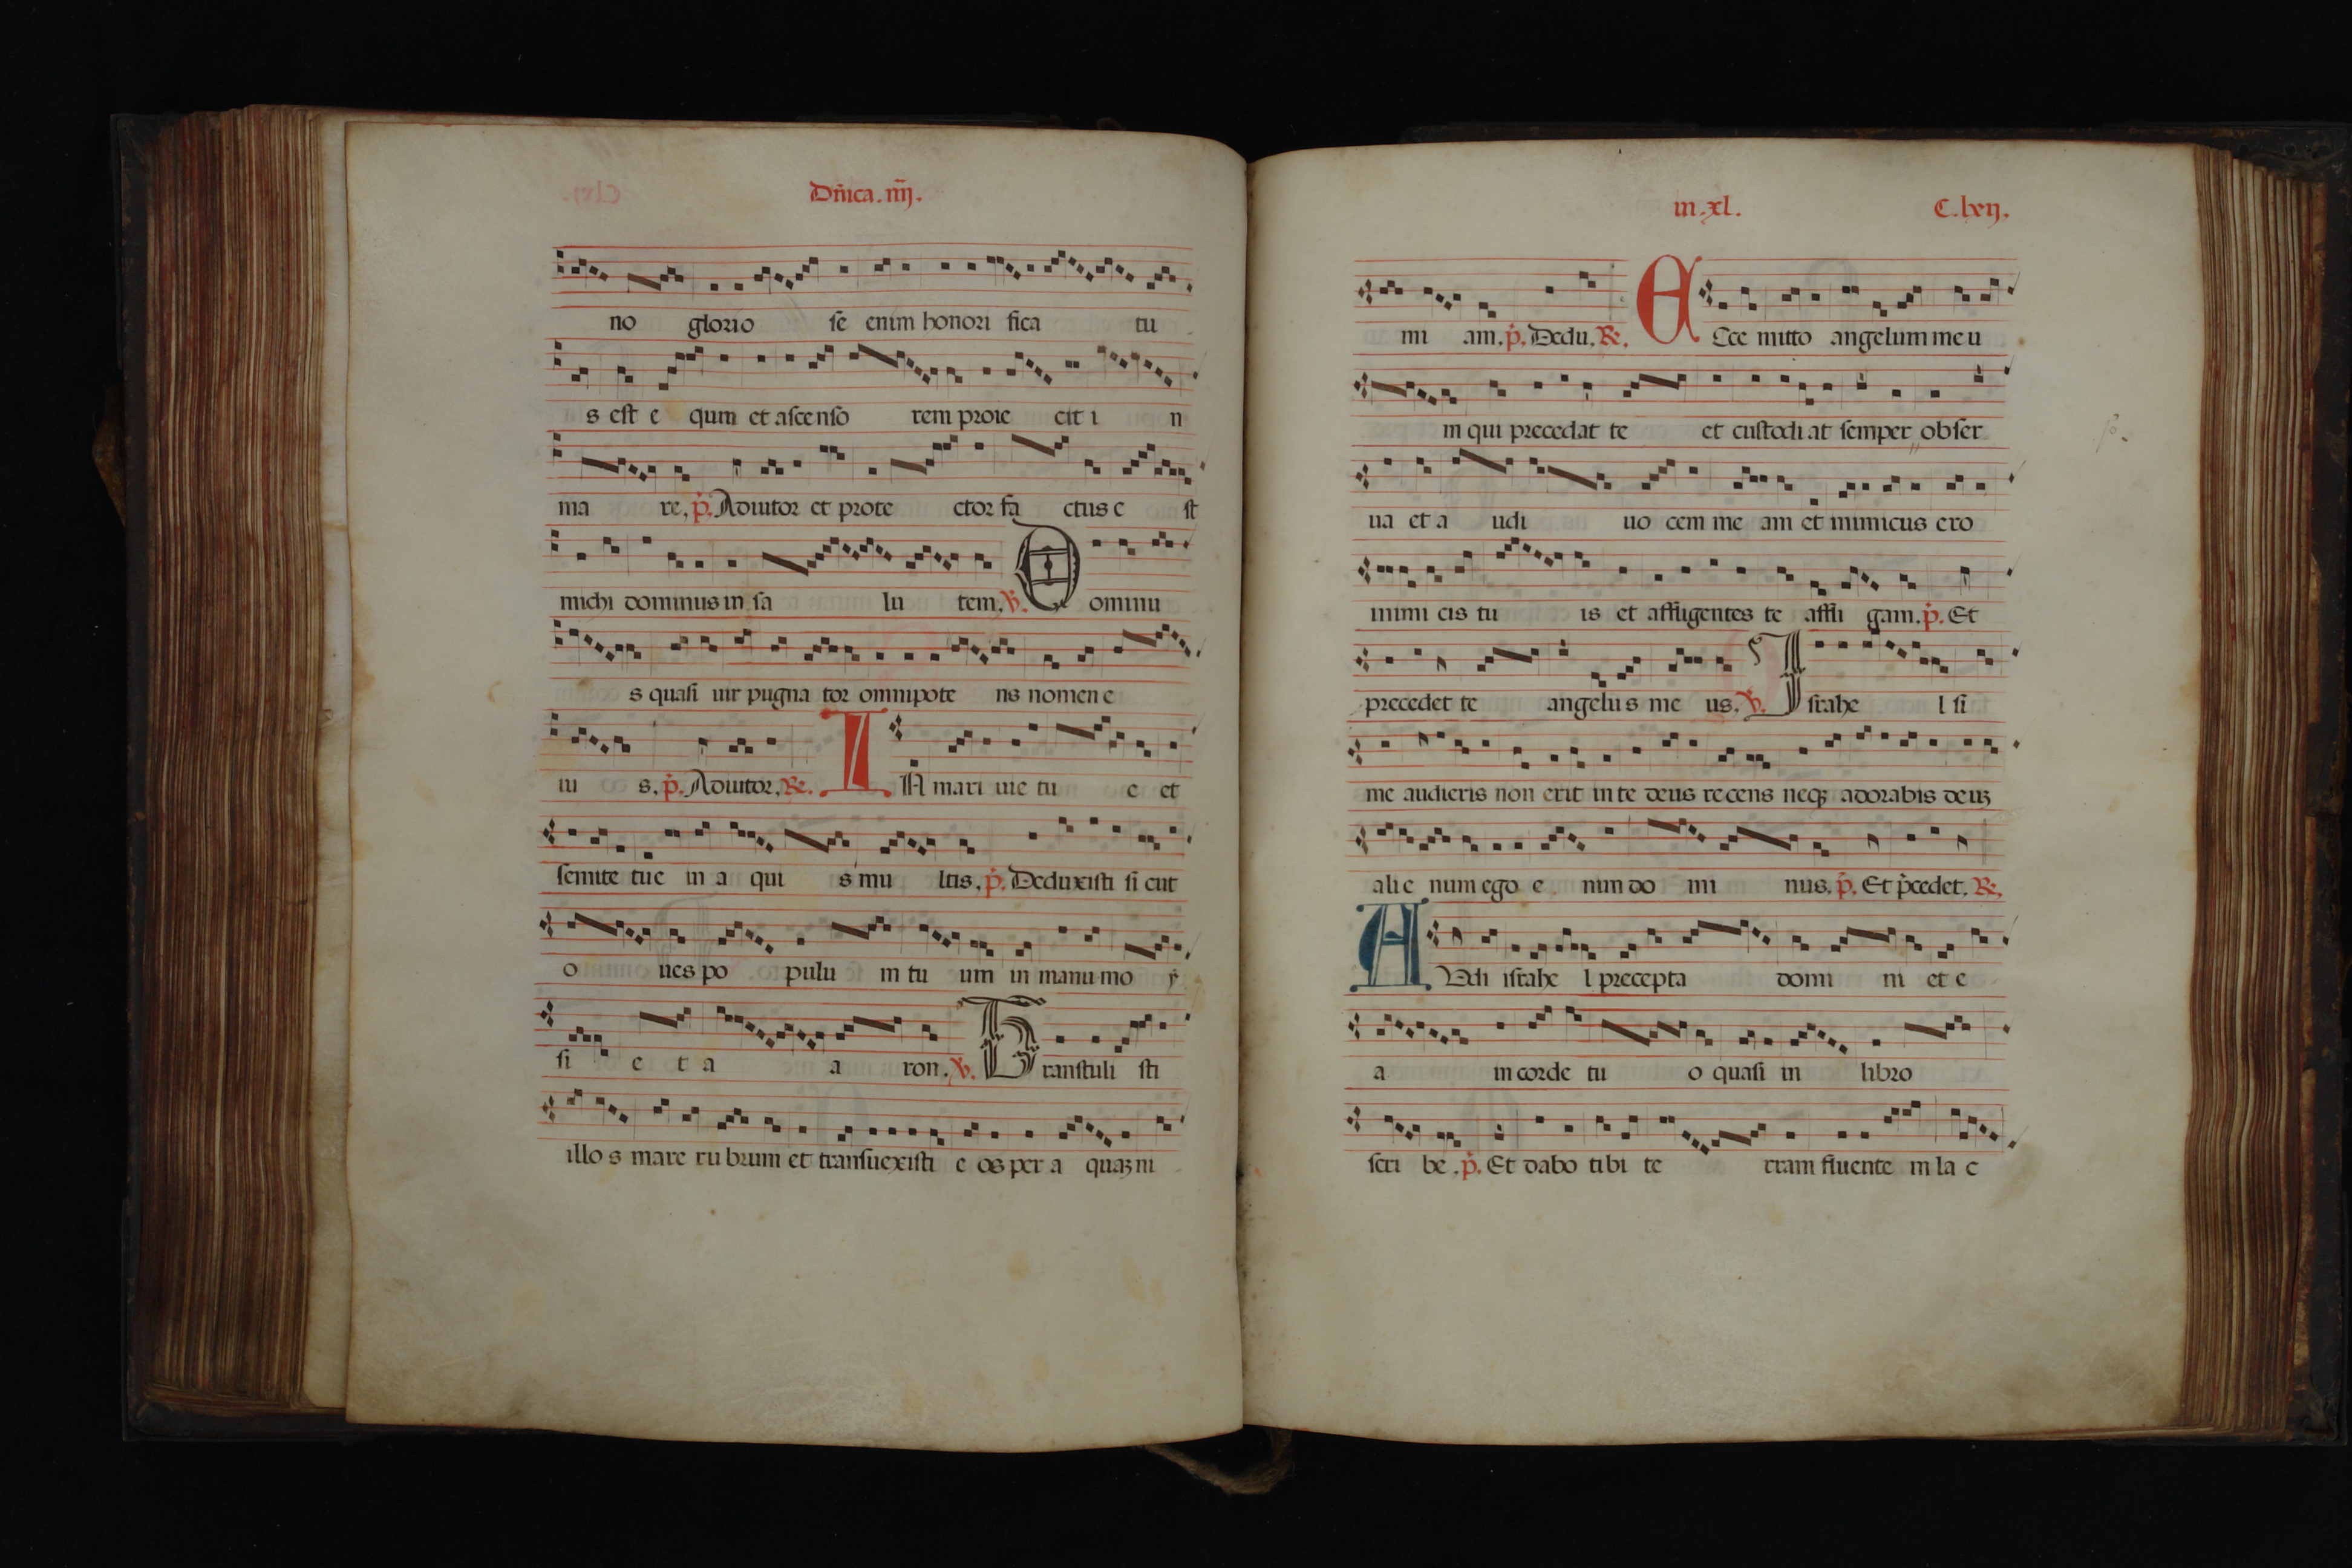 Dñica. iiij.
no glorio se enim honori fica tu
s est e qum et ascenso rem proie cit i n
ma re. p̃. Adiutor et prote ctor fa ctus e st
michi dominus in sa lu tem. ℣. Dominu
s quasi uir pugna tor omnipote ns nomen e
iu s. p̃. Adiutor. ℟. IN mari uie tu e et
semite tue in a qui s mu ltis. p̃. Deduxisti si cut
o ues po pulu m tu um in manu mo ÿ
si e t a a ron. ℣. Transtuli sti
illo s mare ru brum et transuexisti e os per a quaꝫ ni
in. xl. C. lxij.
mi am. p̃. Dedu. ℟. ECce mitto angelum meu
m qui precedat te et custodi at semper obser
ua et a udi uo cem me am et inimicus ero
inimi cis tu is et affligentes te affli gam. p̃. Et
precedet te angelus me us. ℣. Israhe l si
me audieris non erit in te deus recens neqꝫ adorabis deuꝫ
alie num ego e nim do mi nus. p̃. Et p̃cedet. ℟.
AUdi israhe l precepta domi ni et e
a in corde tu o quasi in libro
scri be. p̃. Et dabo tibi te rram fluente m la c